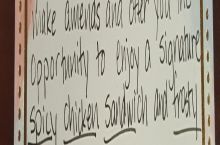 make amends and offer you the
opportunity to enjoy a signature
spicy chicken sandwich and frosty